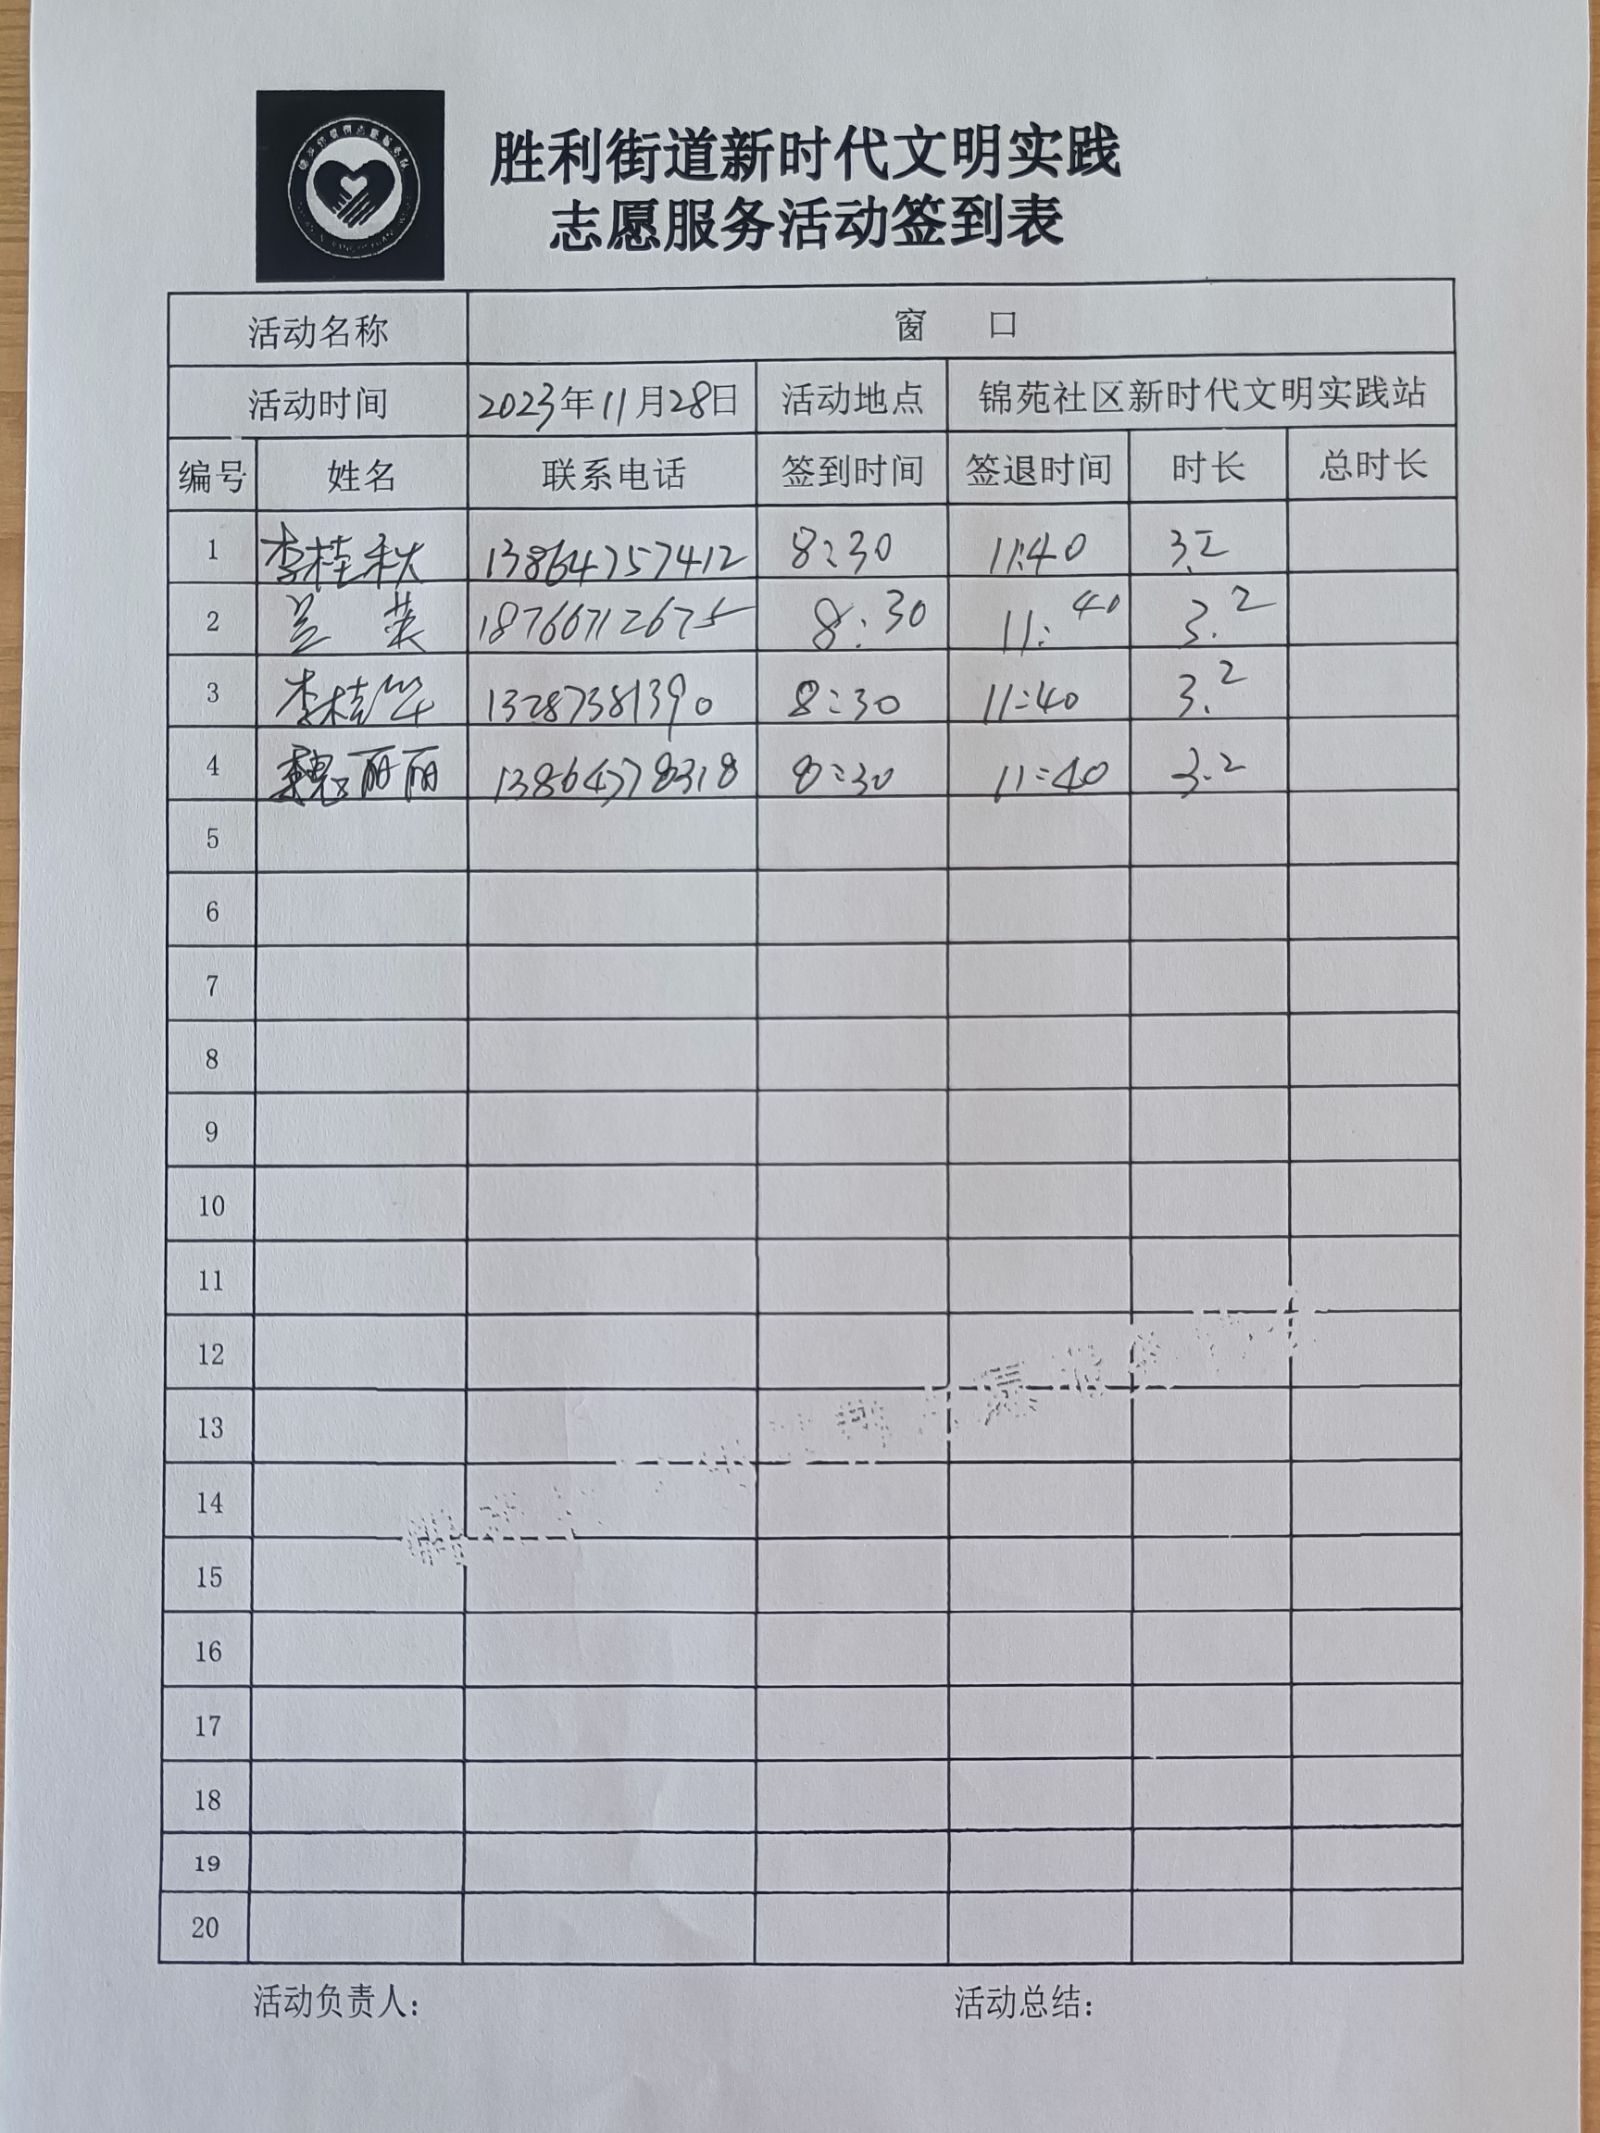 胜利街道新时代文明实践
志愿服务活动签到表
活动名称 窗 口
活动时间 2023年11月28日 活动地点 锦苑社区新时代文明实践站
编号 姓名 联系电话 签到时间 签退时间 时长 总时长
1 李桂秋 13864757412 8:30 11:40 3.2
2 兰英 18766712675 8:30 11:40 3.2
3 李桂华 13287381390 8:30 11:40 3.2
4 魏丽丽 13864778318 8:30 11:40 3.2
5
6
7
8
9
10
11
12
13
14
15
16
17
18
19
20
活动负责人: 活动总结: